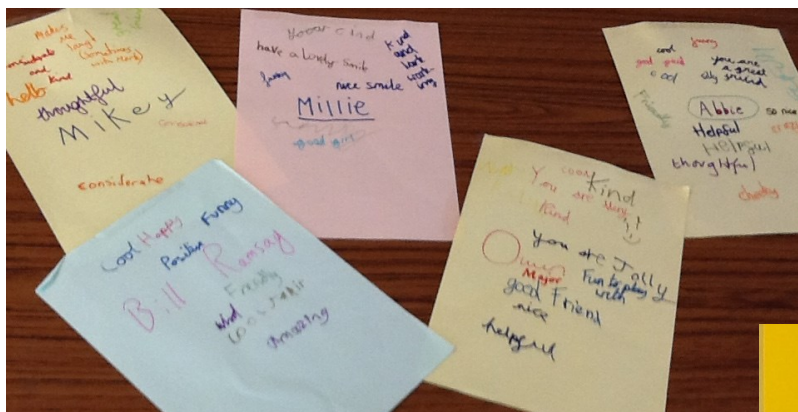 Makes
me
laugh
(sometimes
considerate
and
kind
hello
thoughtful
Mikey
considerate
your kind
have a lovely smile
funny
nice smile
Millie
good girl
cool funny
good you are
a great
cool silly friend
Friendly
Abbie
so nice
Helpful
Helpful
thoughtful
cheeky
Cool Happy Funny
Positive
Bill Ramsay
Friendly
kind
amazing
cool
You are Kind
Kind
You are Jolly
Owen
Major
Fun to play
with
good Friend
nice
helpful